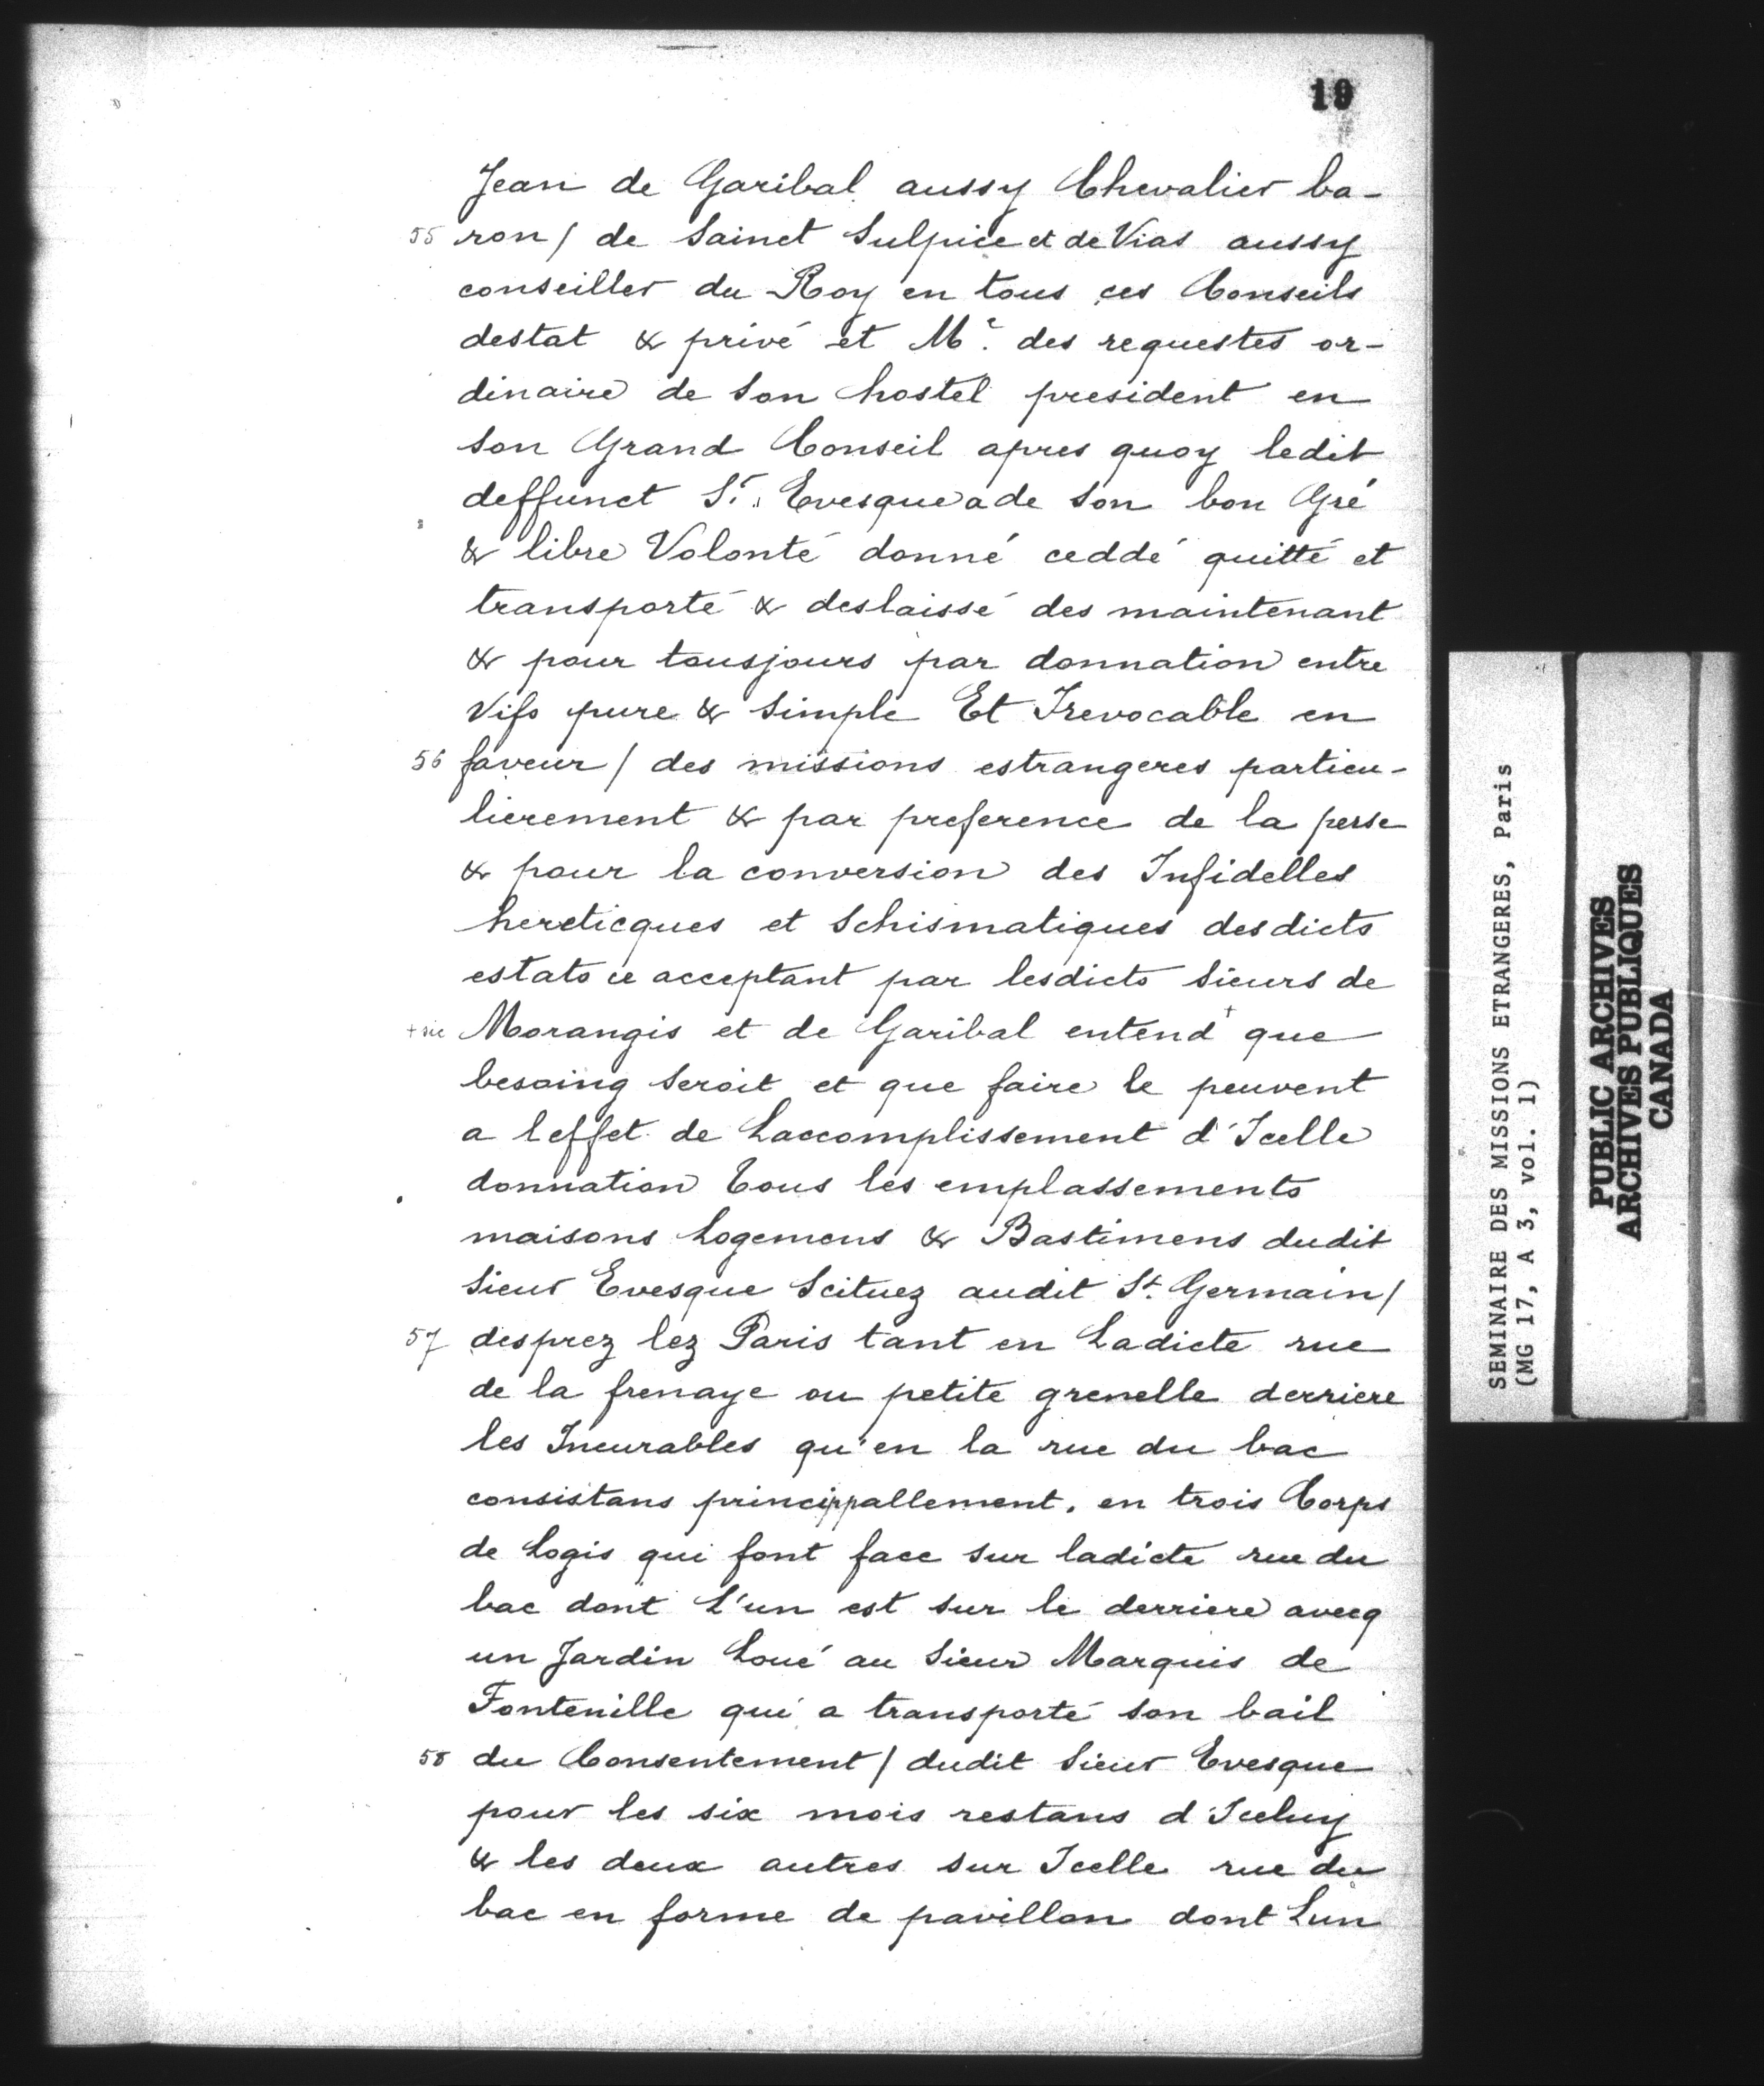 19
Jean de Garibal aussy Chevalier ba-
55 ron / de Sainct Sulpice et de Vias aussy
conseiller du Roy en tous ces Conseils
destat & privé et Me. des requestes or-
dinaire de Son hostel president en
Son Grand Conseil apres quoy ledit
deffunct Sr. Evesque a de Son bon Gré
& libre Volonté donné ceddé quitté et
transporté & deslaissé des maintenant
& pour tousjours par donnation entre
Vifs pure & Simple Et Irevocable en
56 faveur / des missions estrangeres particu-
lierement & par preference de la perse
& pour la conversion des Infidelles
hereticques et Schismatiques desdicts
estats ce acceptant par lesdicts Sieurs de
+ sic Morangis et de Garibal entend + que
besoing Seroit et que faire le peuvent
a leffet de Laccomplissement d'Icelle
donnation Tous les emplassements
maisons Logemens & Bastimens dudit
Sieur Evesque Scituez audit St. Germain /
57 desprez lez Paris tant en Ladicte rue
de la frenaye ou petite grenelle derriere
les Incurables qu'en la rue du bac
consistans princippallement, en trois Corps
de Logis qui font face Sur ladicte rue du
bac dont L'un est Sur le derriere avecq
un Jardin Loué au Sieur Marquis de
Fontenille qui a transporté Son bail
58 du Consentement / dudit Sieur Evesque
pour les six mois restans d'Iceluy
& les deux autres Sur Icelle rue du
bac en forme de pavillon dont Lun
SEMINAIRE DES MISSIONS ETRANGERES, Paris
(MG 17, A 3, vol. 1)
PUBLIC ARCHIVES
ARCHIVES PUBLIQUES
CANADA